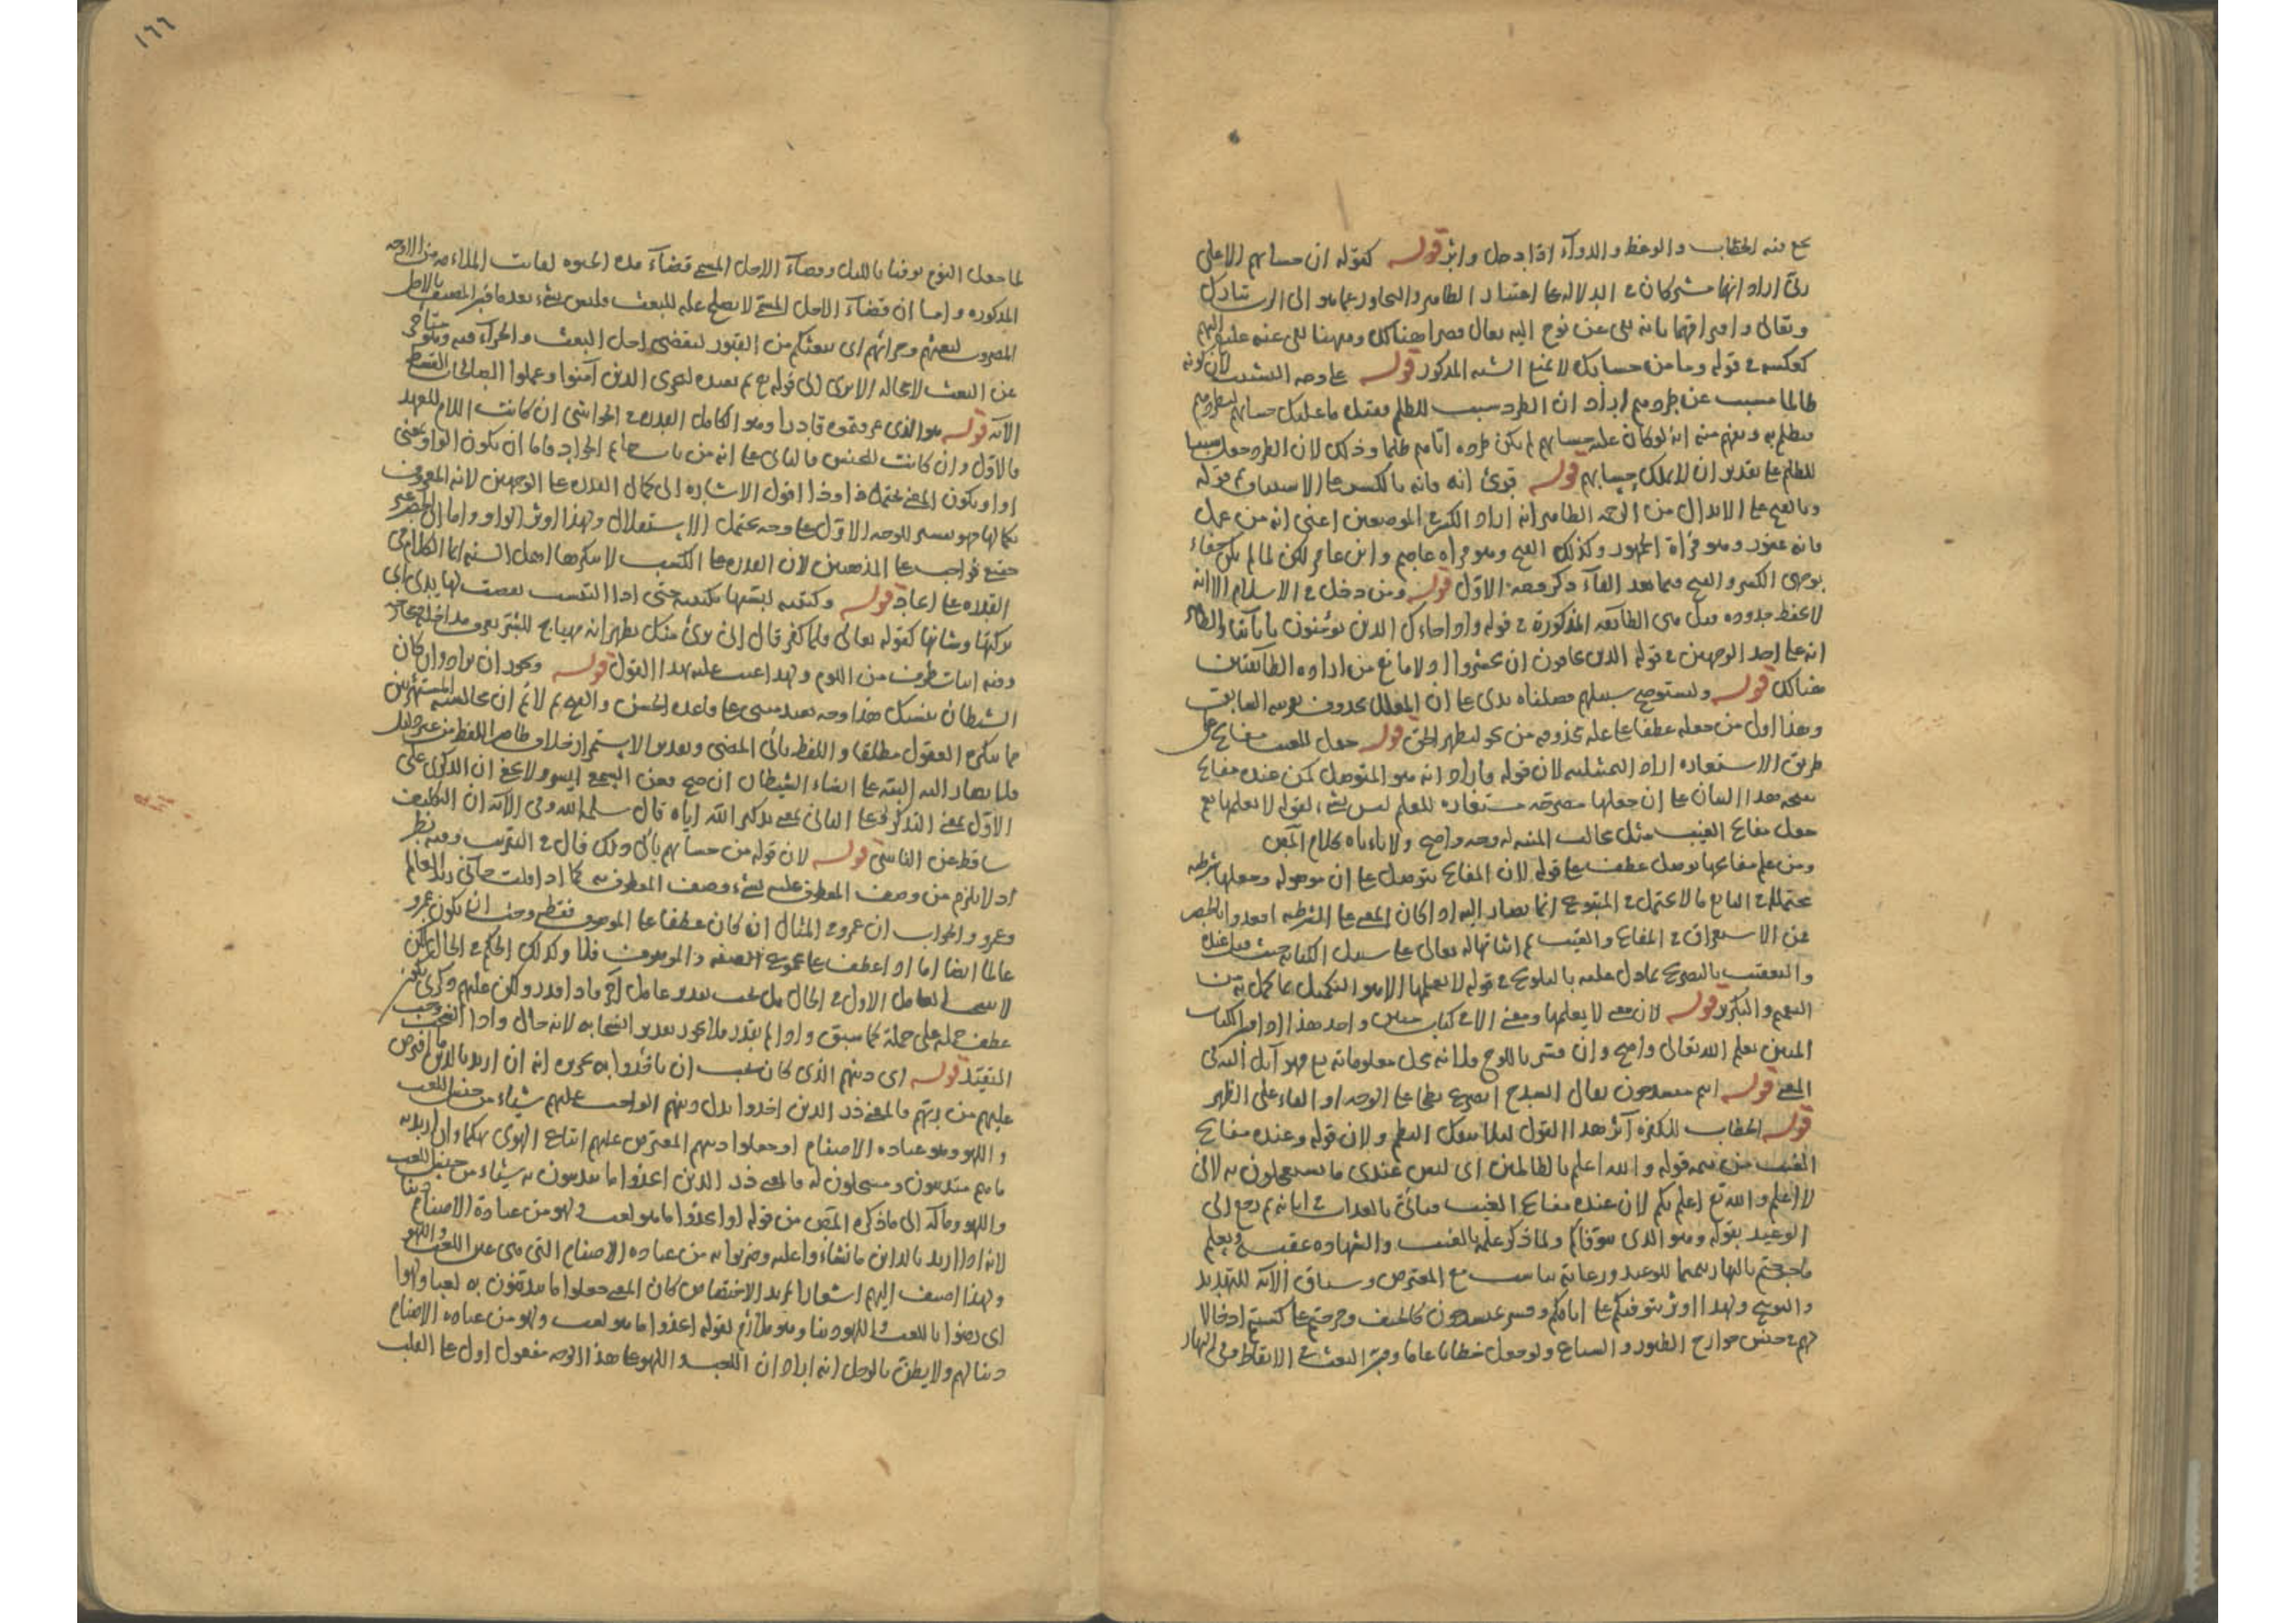 فيه الخطاب والوعظ والدواء اذا بدحل واثر قوله كقوله ان حسابهم الا على
ربي اراد انها مشركان في الدلالة على اعتبار الظاهر والتجاوز عما هو الى
وتعالى وافتراقهما بانه نفي عن نوح اليه تعالى هناك وههنا نفي عنه عليه السلام اليهم
كعكسه في قوله وما من حسابك لا يمنع الشبه المذكور قوله على وجه التسبيب لان كونه
ظالما مسبب عن طردهم اراد ان الطرد سبب للظلم فقيل ما عليك حسابهم لتطردهم
فتظلم به ويفهم منه انه لو كان عليه حسابهم لم يكن طرده اياهم ظلما وذلك لان الطرد جعل سببا
للظلم على تقدير ان لا يملك حسابهم قوله قرئ انه فانه بالكسر على الاستيناف قوله
وبالفتح على الابدال من الرحمة الظاهر انه اراد الكسر في الموضعين اعني انه من عمل
فانه غفور وهو قراة الجمهور وكذلك الفتح وهو قراة عاصم وابن عامر لكن لما لم يكن خفاء
بوجهي الكسر والفتح فيما بعد الفاء ذكر وجه الاول قوله ومن دخل في الاسلام الا انه
لا يحفظ حدوده قيل هي الطائفة المذكورة في قوله واذا جاءك الذين يؤمنون باياتنا والظاهر
انه على احد الوجهين في قوله الذين يخافون ان يحشروا ولا مانع من ارادة الطائفتين
هنالك قوله ولتستوضح سبيلهم فصلناه يدل على ان المعلل محذوف بقرينة السابق
وهذا اولى من جعله عطفا على علة محذوفة من نحو ليظهر الحق قوله جعل للغيب مفاتح على
طريق الاستعارة اراد التمثيلية لان قوله فاراد انه هو المتوصل كمن عنده مفاتح
على ان جعلها مصرحة مستعارة للعلم ليس بشيء لقوله لا يعلمها
جعل مفاتح الغيب مثل المشبه له وجه واضح ولا ياباه كلام المص
ومن علم مفاتحها توصل عطف على قوله لان المفاتح يتوصل على ان موصولة وجعلها شرطية
يحتمل في التابع ما لا يحتمل في المتبوع انما يصار اليه اذا كان المعنى على الشرطية
عن الاستغراق في المفاتح والغيب ثم اثباتها له تعالى على سبيل الكناية حيث قيل عنده
والتعقيب بالتصريح بما دل عليه بالتلويح في قوله لا يعلمها الا هو التكميل بما كمل به من
التعميم والتكرير قوله لان معنى لا يعلمها ومعنى الا في كتاب مبين واحد هذا اذا فسر الكتاب
المبين بعلم الله تعالى واضح وان فسر باللوح فلانه محل معلوماته فهو آيل اليه في
المعنى قوله
قوله الخطاب للكفرة آثر هذا القول لئلا يتفكك النظم ولان قوله وعنده مفاتح
الغيب من تتمة قوله والله اعلم بالظالمين اي ليس عندي ما تستعجلون به لاني
لا اعلم والله تع اعلم بكم لان عنده مفاتح الغيب فيأتي بالعذاب في ابانه ثم رجع الى
الوعيد بقوله وهو الذي يتوفاكم ولما ذكر علمه بالغيب والشهادة عقبه ويعلم
ما جرحتم بالنهار تتميما للوعيد ورعاية تناسب مع المعترض وسياق الآية للتهديد
والتوبيخ ولهذا اوثر يتوفيكم على انامكم وفسر كالجيف وجرحتم على كسبتم ادخالا
لهم في جنس جوارح الطيور والسباع ولو جعل خطابا عاما وفسر البعث في الايقاظ في النهار
١٦٦
لما جعل النوم توفيا بالليل وقضاء الاجل المسمى قضاء مدة الحيوة لفاتت الملاءمة من الاوجه
المذكورة واما ان قضاء الاجل المسمى لا يصلح علة للبعث فليس بشيء بعد ما فسر المصنف بالاجل
المضروب لبعثهم وجزائهم اي يبعثكم من القبور ليقضى اجل البعث والجزاء فيه وهو متاخر
عن البعث لا محالة الا ترى الى قوله ثم يعيده ليجزي الذين آمنوا وعملوا الصالحات بالقسط
الآية قوله هو الذي عرفتموه قادرا وهو الكامل القدرة في الحواشي ان كانت اللام للعهد
فالاول وان كانت للجنس فالثاني على انه من باب حاتم الجواد فاما ان يكون الواو بمعنى
او او يكون المعنى يحتمل هذا وذا اقول الاشارة الى كمال القدرة على الوجهين لانه المعروف
بكمالها فهو تفسير للوجه الاول على وجه يحتمل الاستقلال ولهذا اوثر الواو واما الحصر
على المذهبين لان القدرة على الكسب لا ينكرها اهل السنة انما الكلام في
القدرة على الايجاد قوله وكتيبة لبستها بكتيبة حتى اذا التبست نفضت لها يدي اي
تركتها وشانها كقوله تعالى فلما كفر قال اني برئ منك يظهر انه مهياج للشر
وفيه اثبات طرف من اللوم ولهذا عيب عليه هذا القول قوله ويجوز ان يراد وان كان
الشيطان ينسيك هذا وجه بعيد مبني على قاعدة الحسن والقبح ثم لا نم ان مجالسة المستهزئين
مما تنكره العقول مطلقا واللفظ يأبى المضي وتقدير الاستمرار خلاف ظاهر اللفظ من غير دليل
فلا يصار اليه البتة على انساء الشيطان ان صح فعن السمع ايسر ولا يخفى ان الذكرى على
الاول بمعنى التذكر وعلى الثاني بمعنى تذكير الله اياه قال سلمه الله وفي الآية ان التكليف
ساقط عن الناسي قوله لان قوله من حسابهم يأبى ذلك قال في التقريب وفيه نظر
اذ لا يلزم من وصف المعطوف عليه بشيء وصف المعطوف به كما اذا قلت جاءني زيد العالم
وعمرو والجواب ان عمرو في المثال ان كان عطفا على الموصوف فقط وجب ان يكون عمرو
عالما ايضا اما اذا عطف على مجموع الصفة والموصوف فلا وكذلك الحكم في الحال لكن
لا ينسحب العامل الاول في الحال بل يجب تقدير عامل آخر فاذا قدر ولكن عليهم ذكرى يكون من
عطف جملة على جملة كما سبق واذا لم يقدر فلا يجوز تقدير انسحابه لانه حال واذا انسحب وجب
التقييد قوله اي دينهم الذي كان يجب ان ياخذوا به تحريره انه ان اريد بالدين ما افترض
عليهم من ربهم فالمعنى ذر الذين اخذوا بدل دينهم الواجب عليهم شيئا من جنس اللعب
واللهو وهو عبادة الاصنام او جعلوا دينهم المفترض عليهم اتباع الهوى تهكما وان اريد به
ما هم متدينون ومنتحلون له فالمعنى ذر الذين اتخذوا ما يدينون به شيئا من جنس اللعب
واللهو ومآله الى ما ذكره المص من قوله او اتخذوا ما هو لعب ولهو من عبادة الاصنام دينا
لانه اذا اريد بالدين ما نشاءوا عليه وضربوا به من عبادة الاصنام التي هي عين اللعب واللهو
ولهذا اضيف اليهم اشعارا بمزيد الاختصاص كان المعنى جعلوا ما يدينون به لعبا ولهوا
اي رضوا باللعب واللهو دينا وهو ملائم لقوله اتخذوا ما هو لعب ولهو من عبادة الاصنام
دينا لهم ولا يظن بالرجل انه اراد ان اللعب واللهو على هذا الوجه مفعول اول على القلب